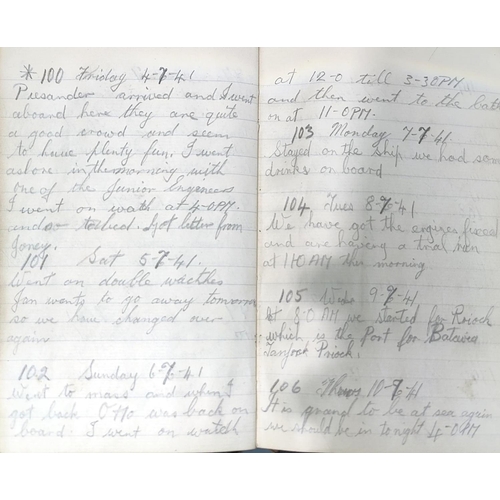 *100 Friday 4-7-41
Pusander arrived and I went
aboard here they are quite
a good crowd and seem
to have plenty fun. I went
ashore in the morning with
one of the Junior Engineers
I went on watch at 4-0 PM.
and tested. Got letter from
Joney.
101 Sat 5-7-41.
Went on double watches
Jan wants to go away tomorrow
so we have changed over
again
102 Sunday 6-7-41
Went to mass and when I
got back Otto was back on
board. I went on watch
at 12-0 till 3-30PM
and then went to the
on at 11-0PM.
103 Monday 7-7-41
Stayed on the ship we had some
drinks on board
104 Tues 8-7-41
We have got the engines fixed
and are having a trial run
at 11-0 AM this morning
105 Wed 9-7-41
At 8-0 AM we started for Priock
which is the Port for Batavia
Tanjock Priock.
106 Thurs 10-7-41
It is grand to be at sea again
we should be in tonight 4-0 PM